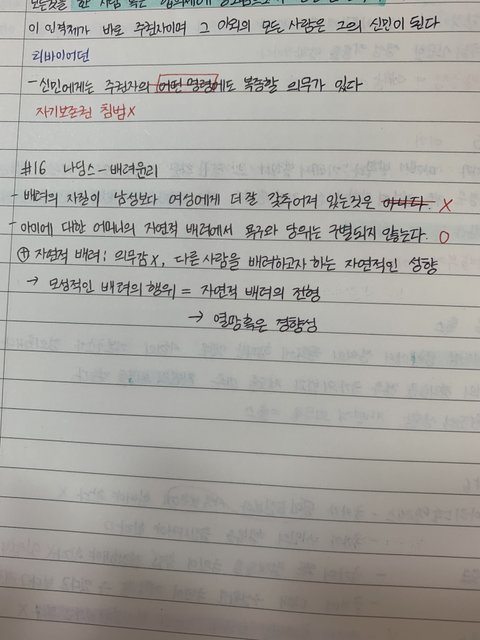 모든것을 한 사람 혹은 합의체에
이 인격체가 바로 주권자이며 그 이외의 모든 사람은 그의 신민이 된다
리바이어던
- 신민에게는 주권자의 어떤 명령에도 복종할 의무가 있다
자기보존권 침범 X
#16 나딩스 - 배려윤리
- 배려의 자질이 남성보다 여성에게 더 잘 갖추어져 있는것은 아니다. X
- 아이에 대한 어머니의 자연적 배려에서 욕구와 당위는 구별되지 않는다. O
⊕ 자연적 배려; 의무감X, 다른 사람을 배려하고자 하는 자연적인 성향
→ 모성적인 배려의 행위 = 자연적 배려의 전형
→ 열망 혹은 경향성